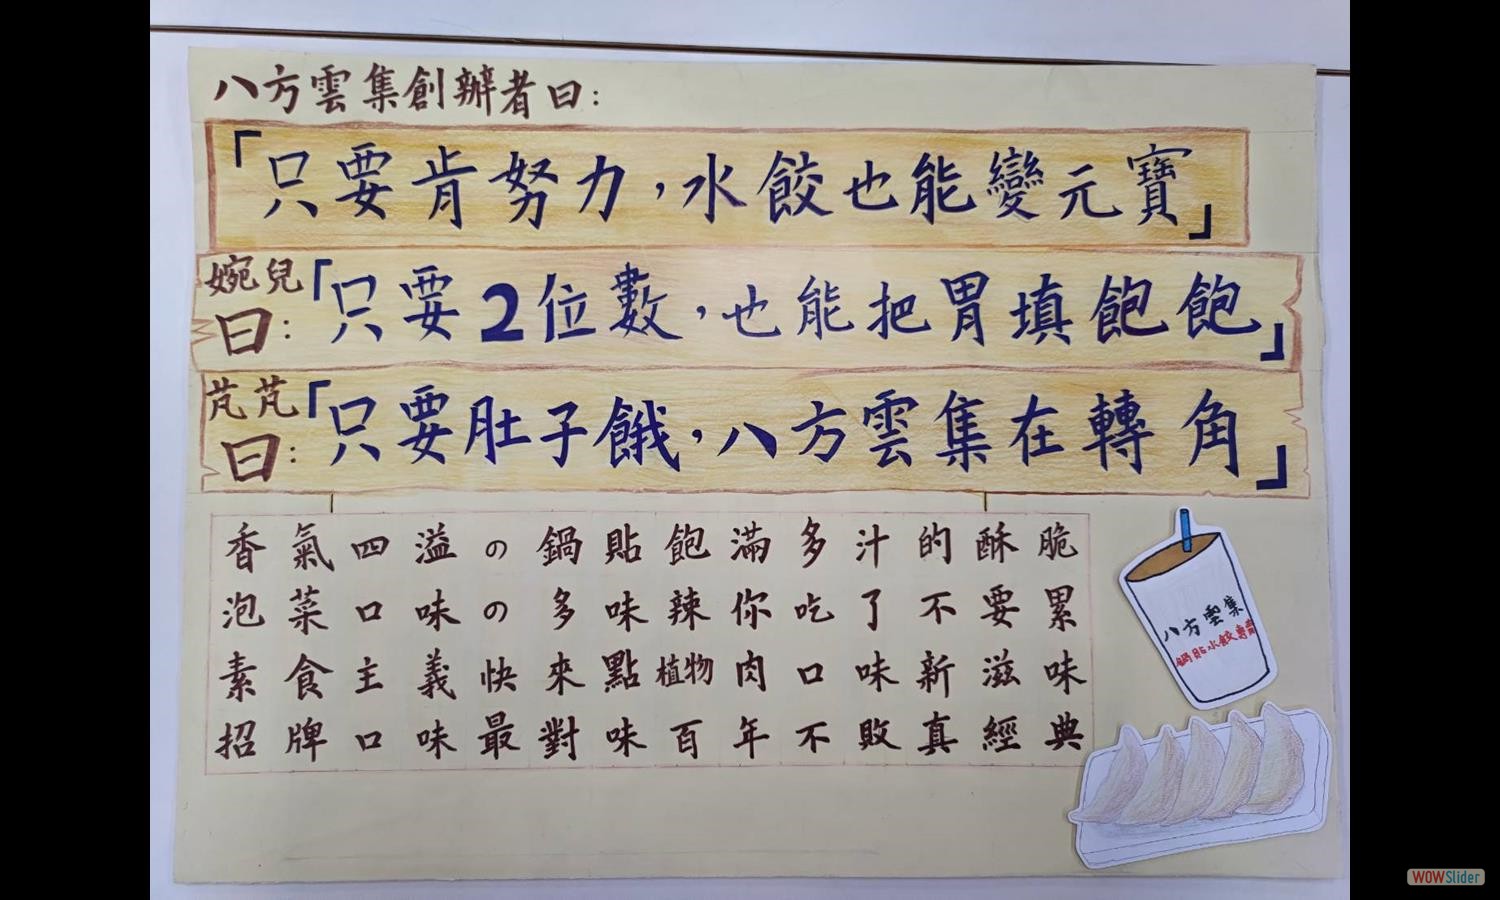 八方雲集創辦者曰：
「只要肯努力，水餃也能變元寶」
婉兒曰：「只要2位數，也能把胃填飽飽」
芃芃曰：「只要肚子餓，八方雲集在轉角」
香氣四溢の鍋貼飽滿多汁的酥脆
泡菜口味の多味辣你吃了不要累
素食主義快來點植物肉口味新滋味
招牌口味最對味百年不敗真經典
八方雲集
鍋貼水餃專賣
WOWSlider